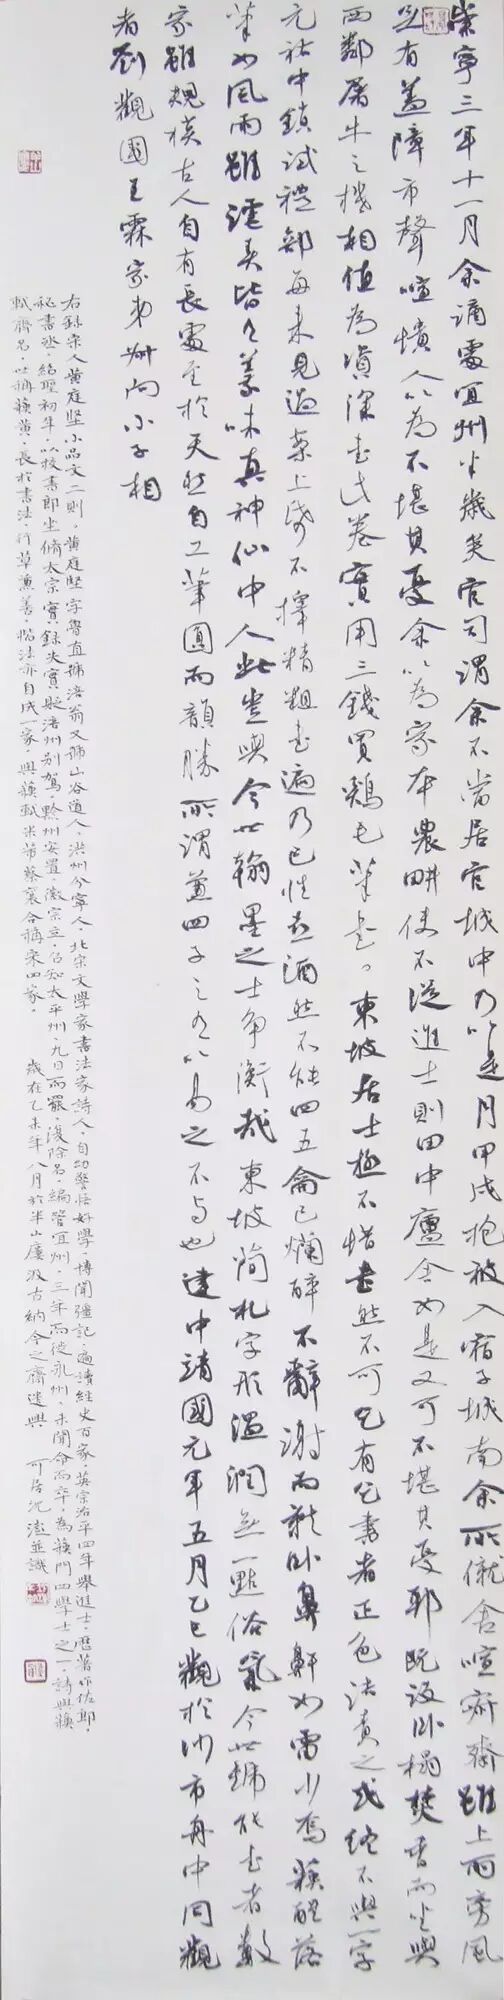 崇寧三年十一月余謫處宜州半歲矣官司謂余不當居官城中乃以是月甲戌抱被入宿子城南余所僦舍喧寂齋雖上雨旁風
無有蓋障市聲喧憒人以為不堪其憂余以為家本農畊使不從進士則田中廬舍如是又可不堪其憂耶既設臥榻焚香而坐與
西鄰屠牛之機相值為資深書此卷實用三錢買雞毛筆書。東坡居士極不惜書然不可乞有乞書者正色詰責之或終不與一字
元祐中鎖試禮部每來見過案上紙不擇精粗書遍乃已性喜酒然不能四五龠已爛醉不辭謝而就臥鼻鼾如雷少焉蘇醒落
筆如風雨雖謔弄皆有義味真神仙中人此豈與今世翰墨之士爭衡哉東坡簡札字形溫潤無一點俗氣今世號能書者數
家雖規橅古人自有長處至於天然自工筆圓而韻勝所謂兼四子之有以易之不與也建中靖國元年五月乙巳觀於沙市舟中同觀
者劉觀國王霖家弟叔向小子相
右錄宋人黃庭堅小品文二則。黃庭堅字魯直號涪翁又號山谷道人。洪州分寧人。北宋文學家書法家詩人。自幼警悟好學。博聞強記。遍讀經史百家。英宗治平四年舉進士。歷著作佐郎。
秘書丞。紹聖初年。以校書郎坐修太宗實錄失實貶涪州別駕。黔州安置。徽宗立。召知太平州。九日而罷。復除名。編管宜州。三年而徙永州。未聞命而卒。為蘇門四學士之一。詩與蘇
軾齊名。世稱蘇黃。長於書法。行草兼善。楷法亦自成一家。與蘇軾米芾蔡襄合稱宋四家。 歲在乙未年八月於半山廔汲古納今之齋遣興 可居沈澨並識